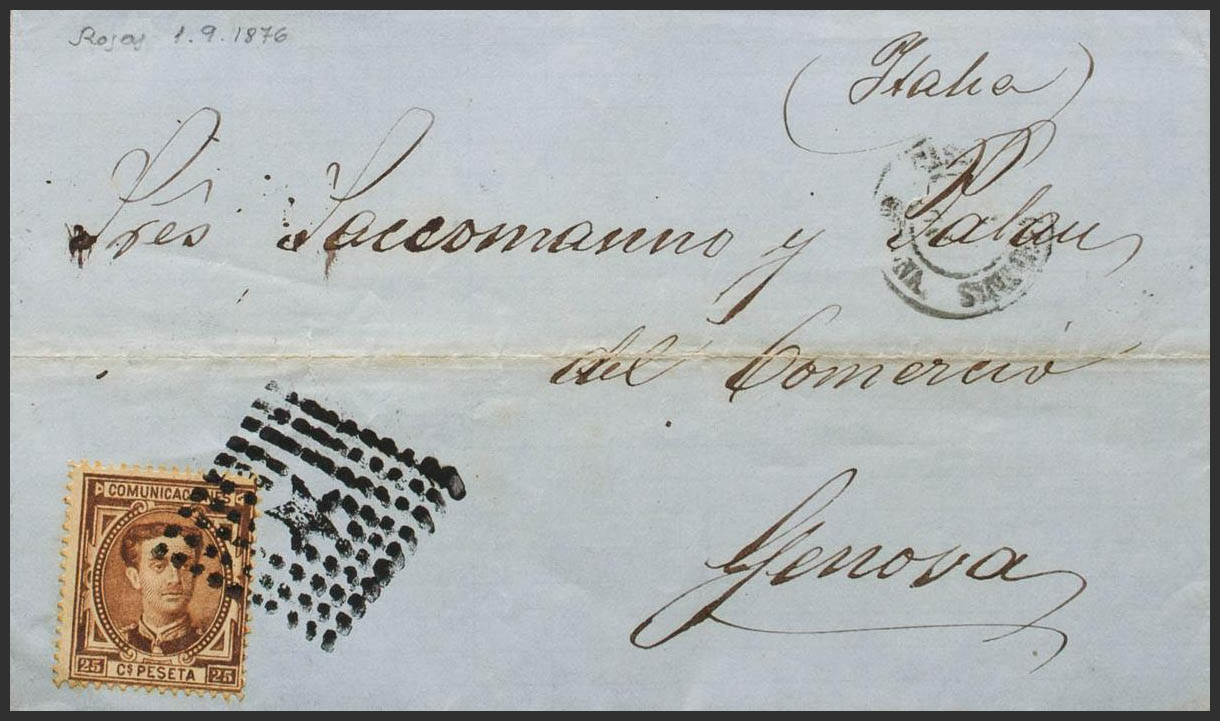 Rosas 1.9.1876
(Italia)
Srês Saccomanno y Palau
del Comercio
Genova
COMUNICACIONES
25 Cs PESETA 25